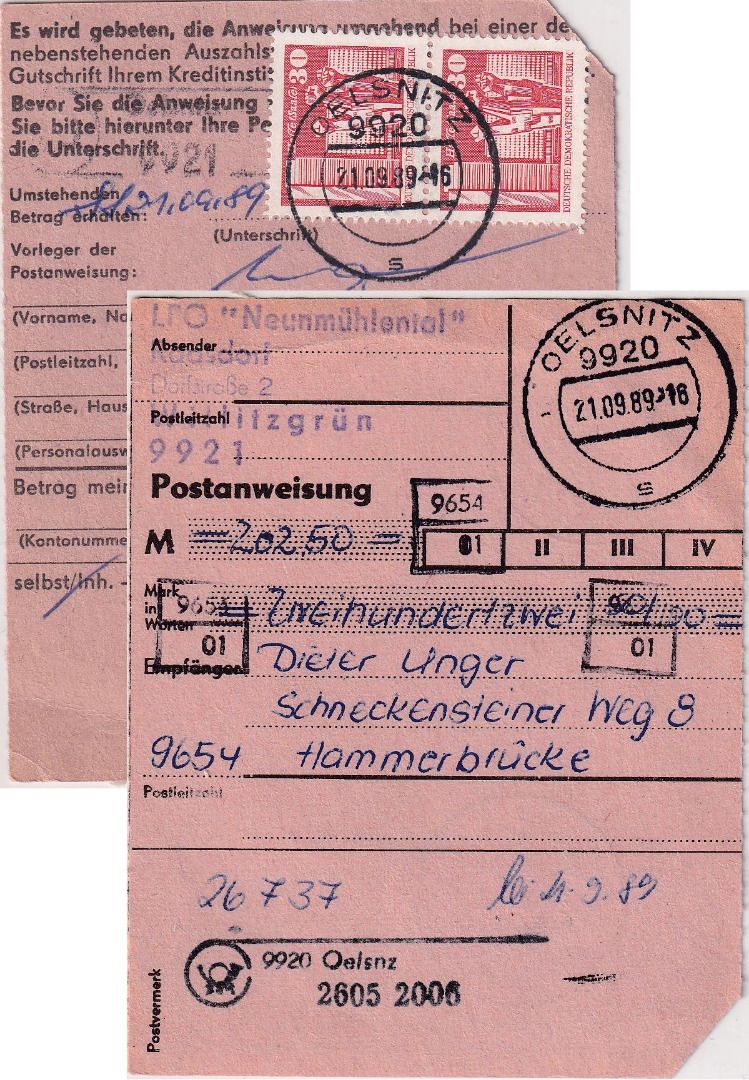 Es wird gebeten, die Anweisung umgehend bei einer de
nebenstehenden Auszahls
Gutschrift Ihrem Kreditinsti
Bevor Sie die Anweisung
Sie bitte hierunter Ihre Pe
die Unterschrift.
9921
30
30
DEUTSCHE DEMOKRATISCHE REPUBLIK
OELSNITZ
9920
21.09.89-16
s
Umstehenden
Betrag erhalten:
21.09.89
(Unterschrift)
Vorleger der
Postanweisung:
(Vorname, Na
(Postleitzahl,
(Straße, Haus
(Personalausw
Betrag mein
(Kontonumme
selbst/Inh. -
LPG "Neunmühlental"
Absender
Raasdorf
Dorfstraße 2
Postleitzahl
litzgrün
9921
OELSNITZ
9920
21.09.89-16
s
Postanweisung
9654
01 II III IV
M = 202,50 =
Mark
in
Worten
= Zweihundertzwei =
01
01
Empfänger
Dieter Unger
Schneckensteiner Weg 8
9654 Hammerbrücke
Postleitzahl
26 737
9.89
9920 Oelsnz
2605 2006
Postvermerk